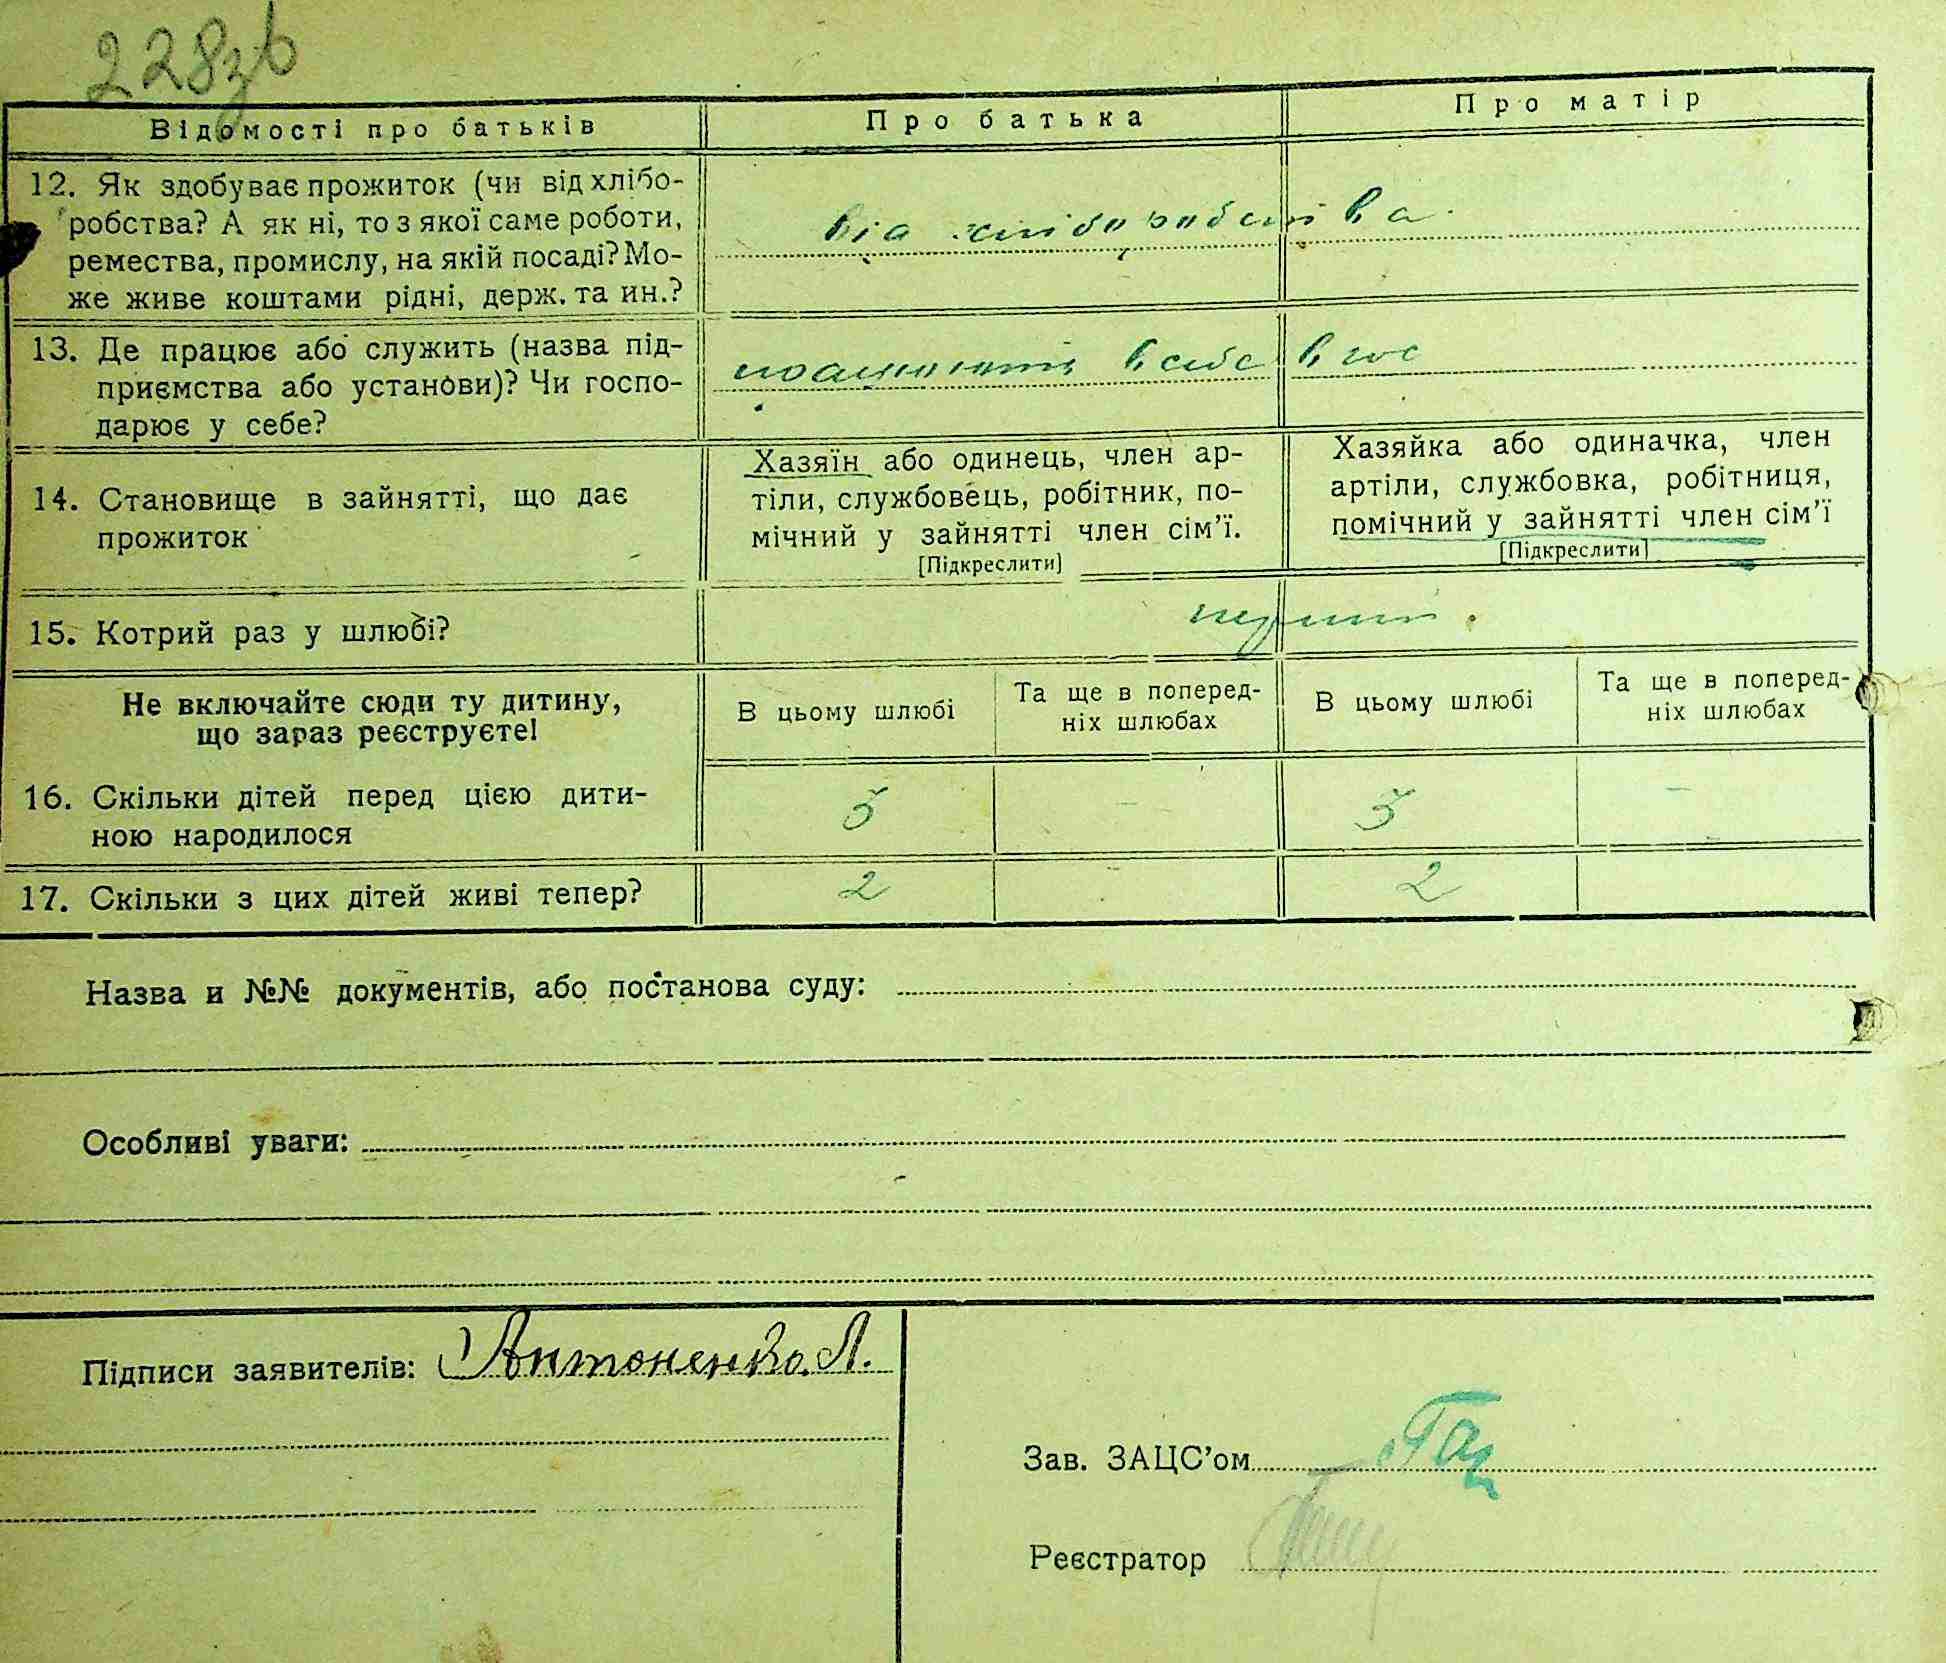 228зв
Відомості про батьків Про батька Про матір
12. Як здобуває прожиток (чи від хлібо-
робства? А як ні, то з якої саме роботи,
ремества, промислу, на якій посаді? Мо-
же живе коштами рідні, держ. та ин.?
від хліборобства.
13. Де працює або служить (назва під-
приємства або установи)? Чи госпо-
дарює у себе?
в себе в гос
14. Становище в зайнятті, що дає
прожиток
Хазяїн або одинець, член ар-
тіли, службовець, робітник, по-
мічний у зайнятті член сім'ї.
[Підкреслити]
Хазяйка або одиначка, член
артіли, службовка, робітниця,
помічний у зайнятті член сім'ї
[Підкреслити]
15. Котрий раз у шлюбі?
перший.
Не включайте сюди ту дитину,
що зараз реєструєте!
В цьому шлюбі
Та ще в поперед-
ніх шлюбах
В цьому шлюбі
Та ще в поперед-
ніх шлюбах
16. Скільки дітей перед цією дити-
ною народилося
5 - 5 -
17. Скільки з цих дітей живі тепер?
2 - 2
Назва и №№ документів, або постанова суду:
Особливі уваги:
Підписи заявителів: Антоненко. Л.
Зав. ЗАЦС'ом
Реєстратор